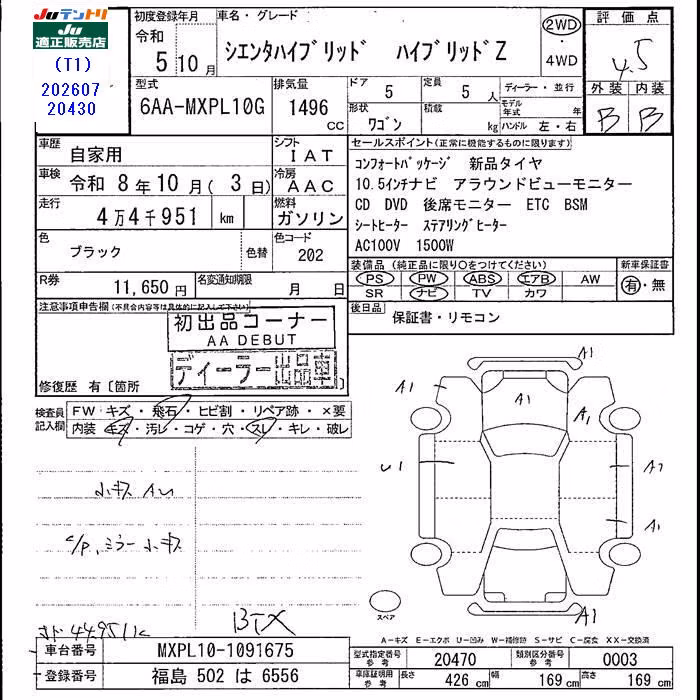 JUテントリ
JU
適正販売店
(T1)
202607
20430
初度登録年月
令和
5 10 月
車名・グレード
シエンタハイブリッド ハイブリッドZ
2WD
・
4WD
評価点
4.5
外装 内装
B B
型式
6AA-MXPL10G
排気量
1496 CC
ドア
5
定員
5 人
形状
ワゴン
積載
kg
ディーラー・並行
モデル年式 年
ハンドル 左・右
車歴
自家用
シフト
IAT
車検
令和 8年10月( 3日)
冷房
AAC
走行
4万4千951 km
燃料
ガソリン
色
ブラック
色替
色コード
202
R券
11,650 円
名変通知期限
月 日
セールスポイント(正常に機能するものに限ります)
コンフォートパッケージ 新品タイヤ
10.5インチナビ アラウンドビューモニター
CD DVD 後席モニター ETC BSM
シートヒーター ステアリングヒーター
AC100V 1500W
装備品 (純正品に限り○をつけてください)
PS PW ABS エアB AW
SR ナビ TV カワ
新車保証書
有・無
後日品
保証書・リモコン
注意事項申告欄(不具合内容等は具体的に記入して下さい)
初出品コーナー
AA DEBUT
ディーラー出品車
修復歴 有〔箇所
検査員
記入欄
FW キズ・飛石・ヒビ割・リペア跡・×要
内装 キズ・汚レ・コゲ・穴・スレ・キレ・破レ
小キズ AU
C/P、ミラー小キズ
BTX
44951K
A1
A1
A1
A1
U1
A1
A1
スペア
A-キズ E-エクボ U-凹み W-補修跡 S-サビ C-腐食 XX-交換済
車台番号
MXPL10-1091675
登録番号
福島 502 は 6556
型式指定番号
参考
20470
類別区分番号
参考
0003
車庫証明用
参考
長さ 426 cm
幅 169 cm
高さ 169 cm